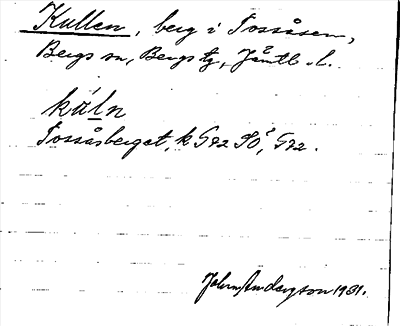 Kullen, berg i Tossåsen,
Bergs sn, Bergs tg, Jämtl. l.
kuln
Tossåsberget, k G92 SO, G92.
John Anderson 1931.